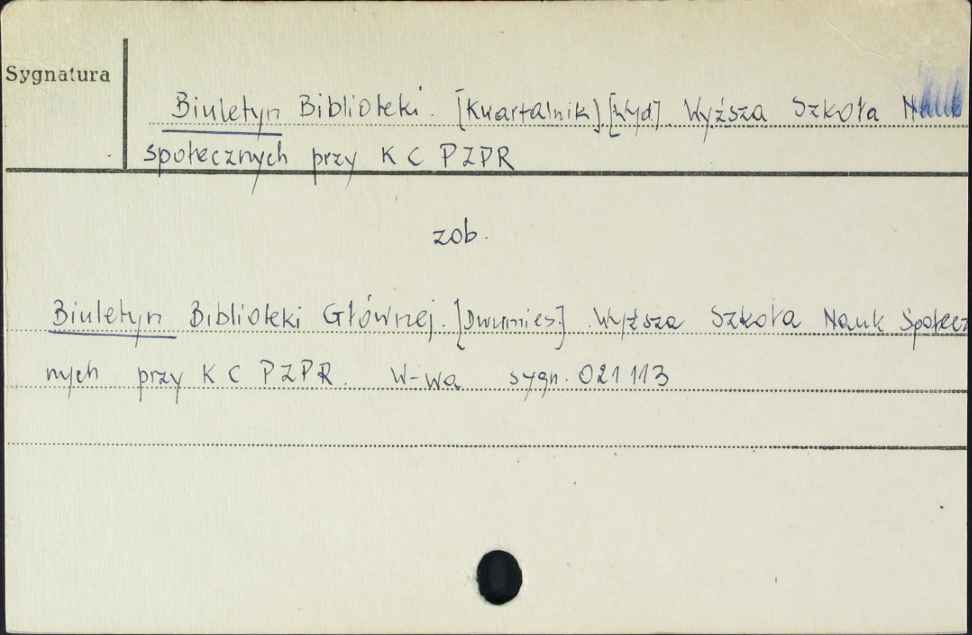 Sygnatura
Biuletyn Biblioteki. [Kwartalnik].[Wyd]. Wyższa Szkoła Nauk
społecznych przy KC PZPR
zob.
Biuletyn Biblioteki Głównej. [Dwumies]. Wyższa Szkoła Nauk Społecz
nych przy KC PZPR. W-wa sygn. 021113